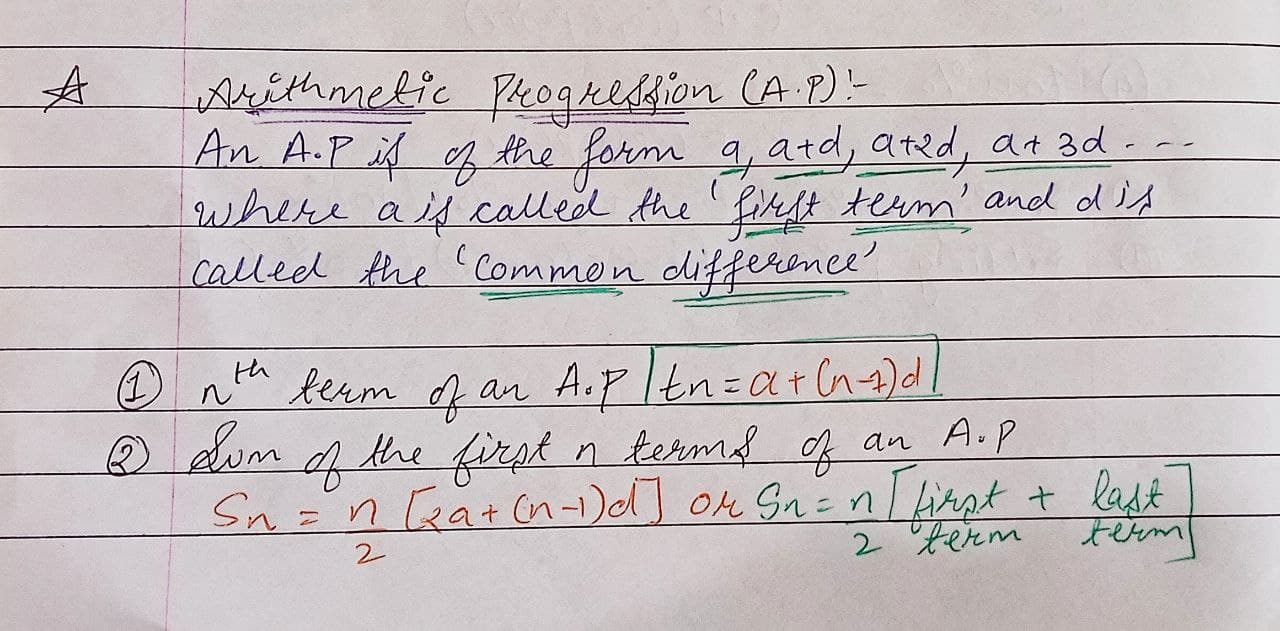 ☆ Arithmetic Progression (A.P):-
An A.P is of the form a, a+d, a+2d, a+3d ----
where a is called the 'first term' and d is
called the 'common difference'
① nth term of an A.P tn = a + (n-1)d
② Sum of the first n terms of an A.P
Sn = n/2 [2a + (n-1)d] or Sn = n/2 [first term + last term]